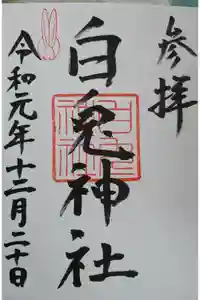 参拝
白兎神社
令和元年十二月二十日